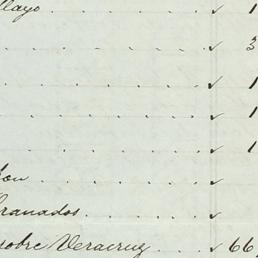 llayo . . . . . . . ✓ 1
. . . . . . . ✓ 3
. . . . . . . ✓ 1
. . . . . . . ✓ 1
. . . . . . . ✓ 1
. . . . . . ✓
Granados . . . . . ✓
sobre Veracruz . . . ✓ 66